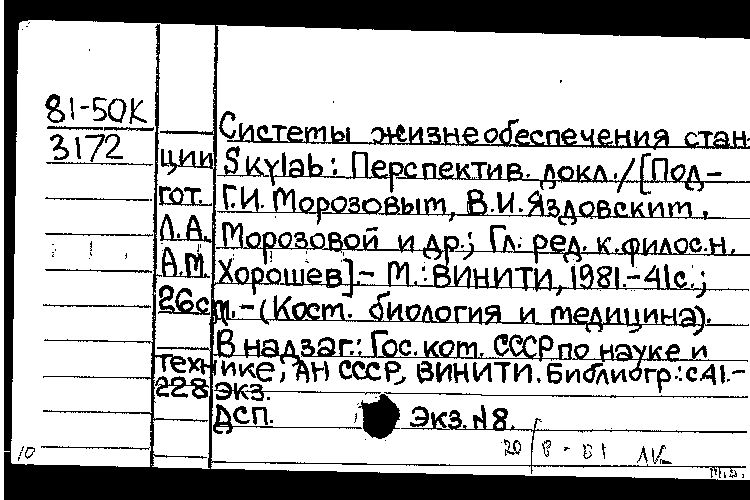 81-50К
3172
Системы жизнеобеспечения стан-
ции Skylab: Перспектив. докл./[Под-
гот. Г.И. Морозовым, В.И. Яздовским,
Л.А. Морозовой и др.; Гл. ред. к.филос.н.
А.М. Хорошев].- М.: ВИНИТИ, 1981.-41с.;
26см.-(Косм. биология и медицина).
В надзаг.: Гос. ком. СССР по науке и
технике, АН СССР, ВИНИТИ. Библиогр.: с.41.-
228 экз.
ДСП. Экз. №8.
20/8-81
10